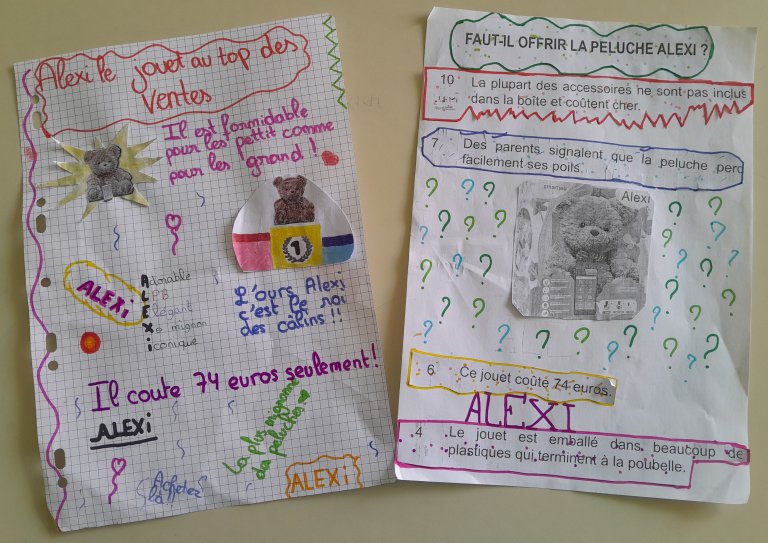 Alexi le jouet au top des
ventes
Il est formidable
pour les pettit comme
pour les grand !
1
ALEXi
Adorable
Élégant
mignon
iconique
L'ours Alexi
c'est le roi
des câlins !!
Il coute 74 euros seulement !
ALEXi
La plus mignonne
des peluches
Achetez
la
ALEXi
FAUT-IL OFFRIR LA PELUCHE ALEXI ?
10 La plupart des accessoires ne sont pas inclus
dans la boîte et coûtent cher.
7 Des parents signalent que la peluche perd
facilement ses poils.
smartjeu
Alexi
6 Ce jouet coûte 74 euros.
ALEXI
4 Le jouet est emballé dans beaucoup de
plastiques qui terminent à la poubelle.